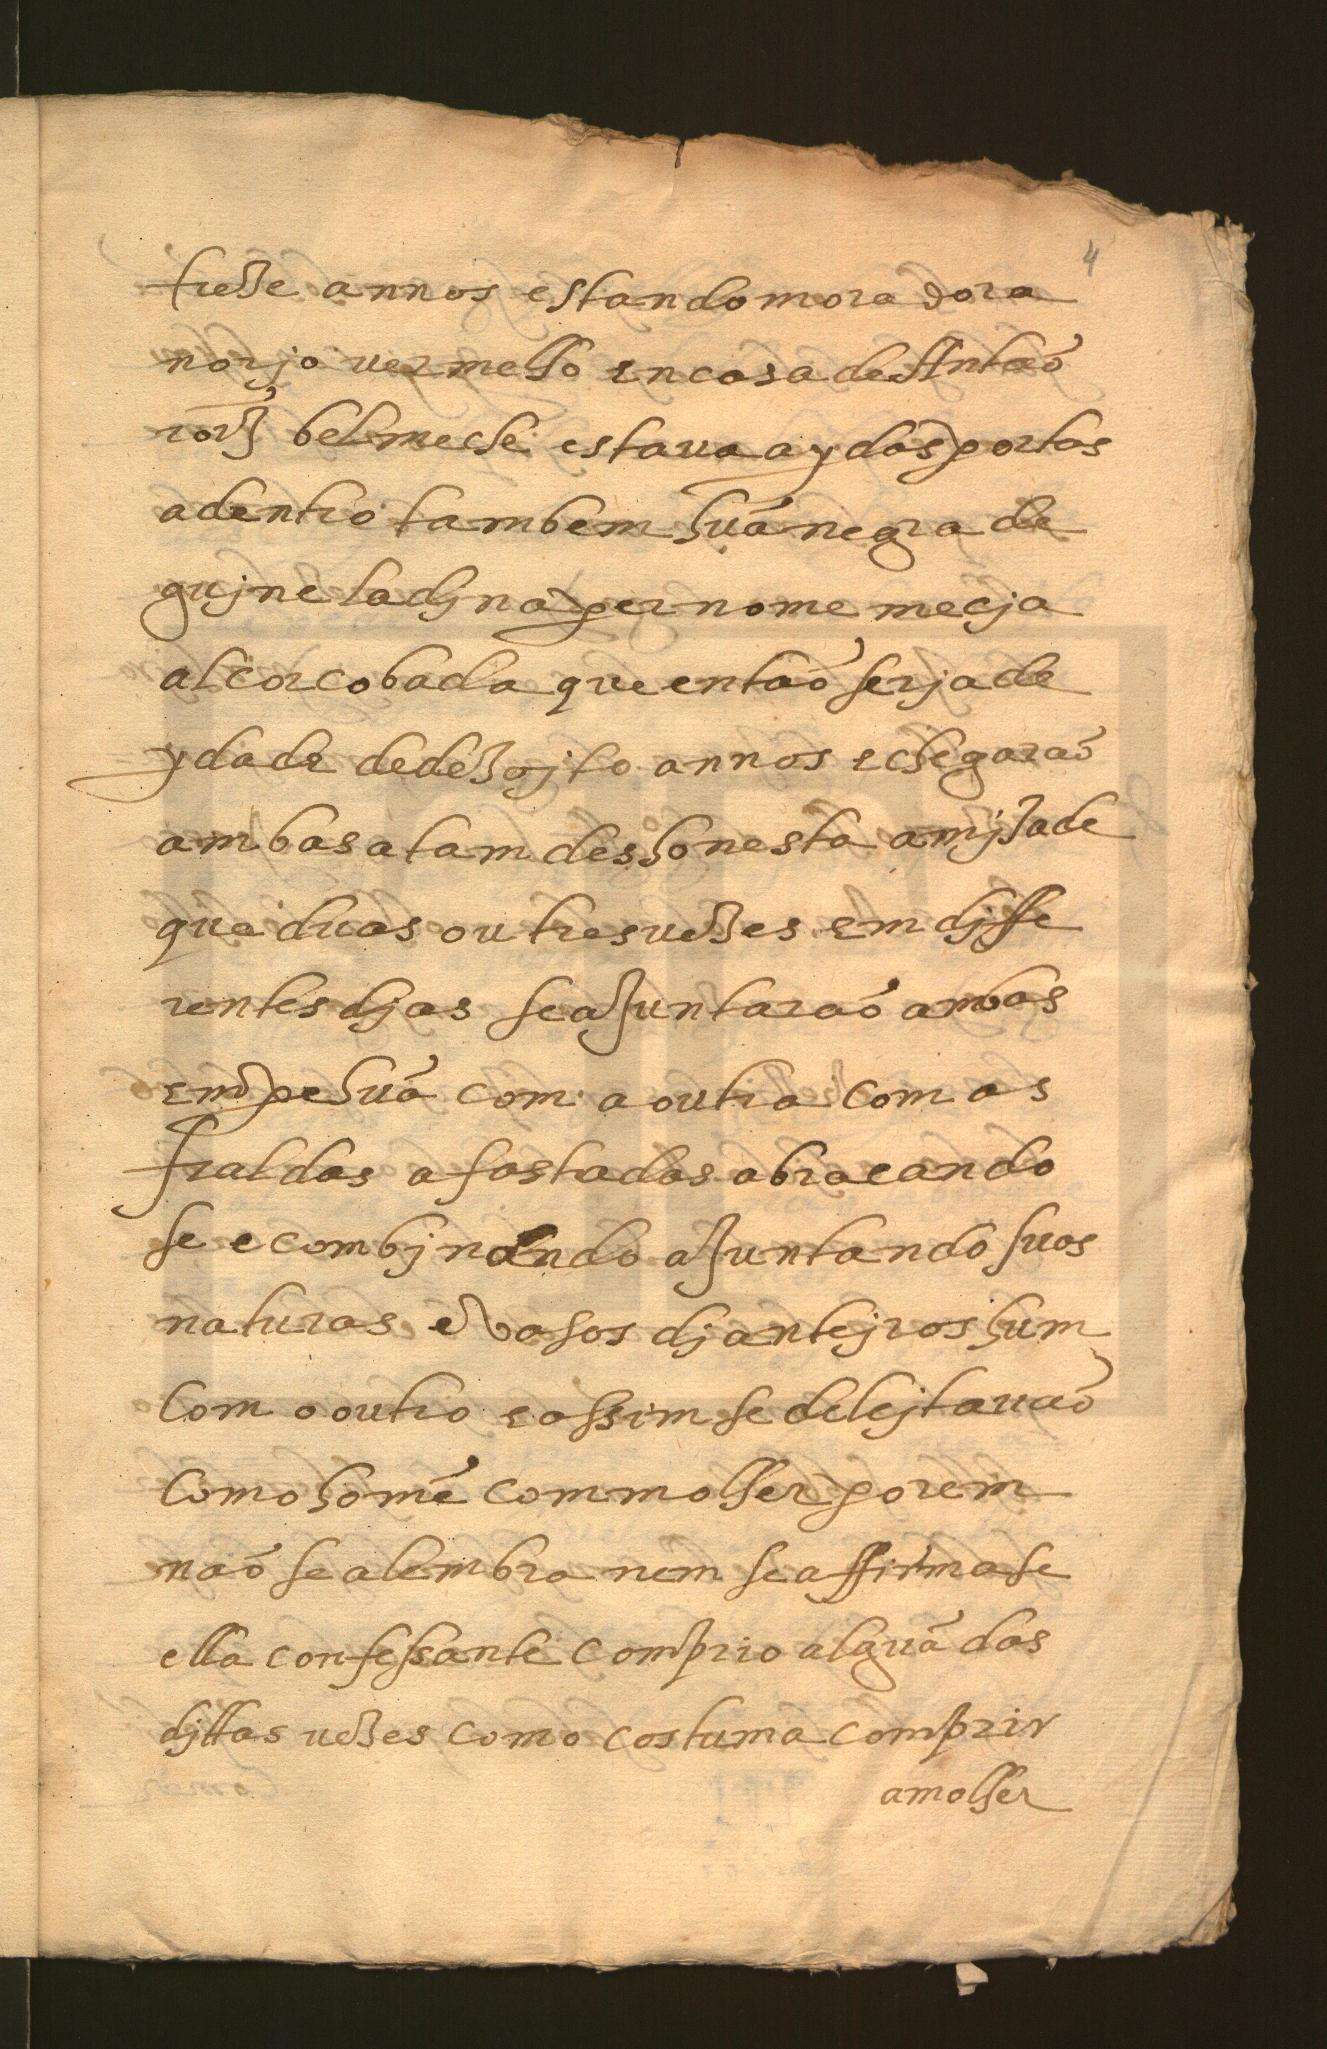 4
treze annos estando moradora
no rjo vermelho en casa de Antaõ
roĩz belmeche estava ay das portas
adentro tambem huã negra de
gujne ladjna per nome mecja
alcorcobada que entaõ serja de
ydade de dezojto annos e chegaraõ
ambas a tam deshonesta amjzade
que duas ou tres vezes em djffe
rentes djas se ajuntaraõ ambas
em pe huã com a outra com as
fraldas afastadas abracando
se e combjnando ajuntando suas
naturas e vasos djantejros hum
com o outro e assim se delejtavaõ
como homẽ com molher porem
naõ se alembra nem se affirma se
ella confessante comprio alguã das
djttas vezes como costuma comprir
a molher